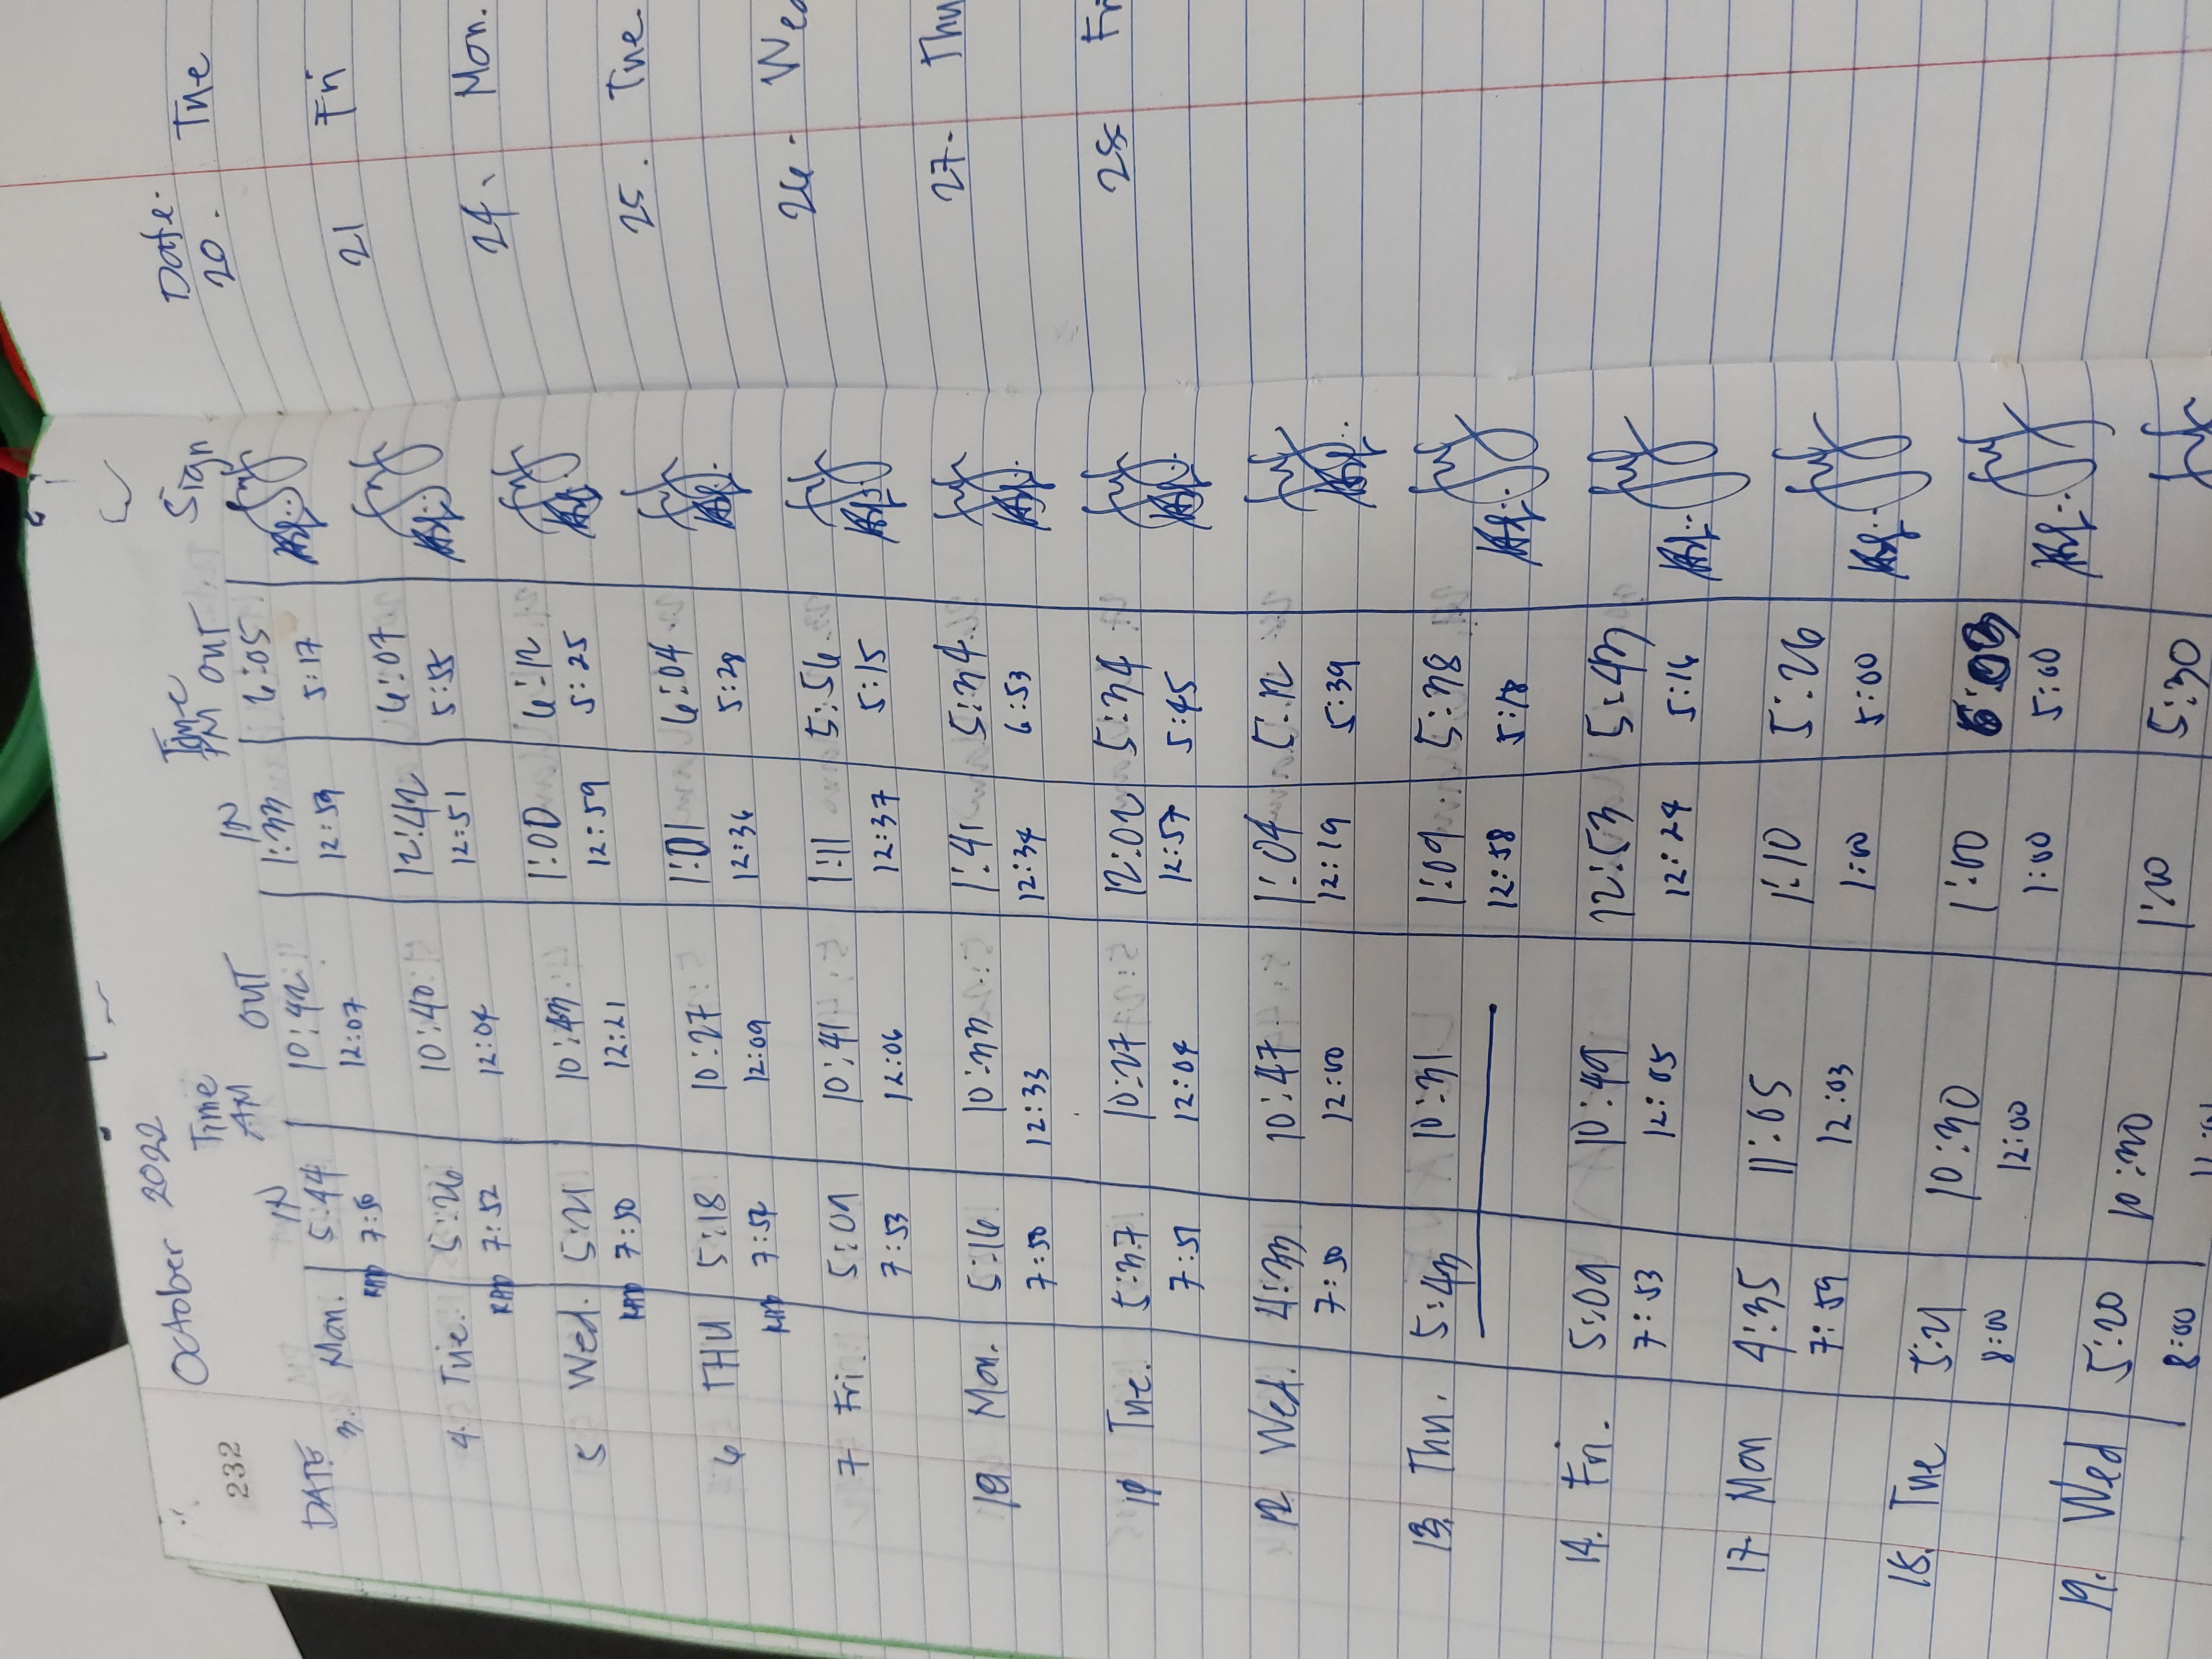 232
October 2022
Time Time
AM PM
DATE IN OUT IN OUT Sign
3. Mon. 5:44 10:42 1:33 6:05
RHD 7:56 12:07 12:59 5:17
4. Tue. 5:26 10:40 12:42 6:07
RHD 7:52 12:04 12:51 5:55
5 Wed. 5:21 10:43 1:00 6:12
RHD 7:50 12:21 12:59 5:25
6 THU 5:18 10:27 1:01 6:04
RHD 7:57 12:09 12:36 5:28
7 Fri 5:01 10:41 1:11 5:56
7:53 12:06 12:37 5:15
10 Mon. 5:16 10:33 1:41 5:34
7:50 12:33 12:34 6:53
11 Tue. 5:37 10:27 12:02 5:34
7:51 12:04 12:57 5:45
12 Wed. 4:33 10:47 1:04 5:12
7:50 12:00 12:19 5:39
13. Thu. 5:43 10:31 1:09 5:38
12:58 5:18
14. Fri. 5:09 10:49 12:53 5:43
7:53 12:05 12:24 5:16
17 Mon 4:35 11:05 1:10 5:26
7:59 12:03 1:00 5:00
18. Tue 5:21 10:30 1:00
8:00 12:00 1:00 5:00
19. Wed 5:20 10:30 1:20 5:30
8:00
Date.
20. Tue
21 Fri
24. Mon.
25. Tue.
26. Wed
27. Thu
28 Fri